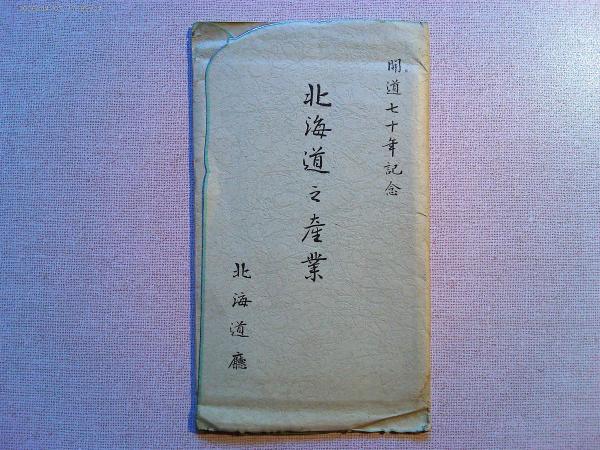 開道七十年記念
北海道之産業
北海道廳